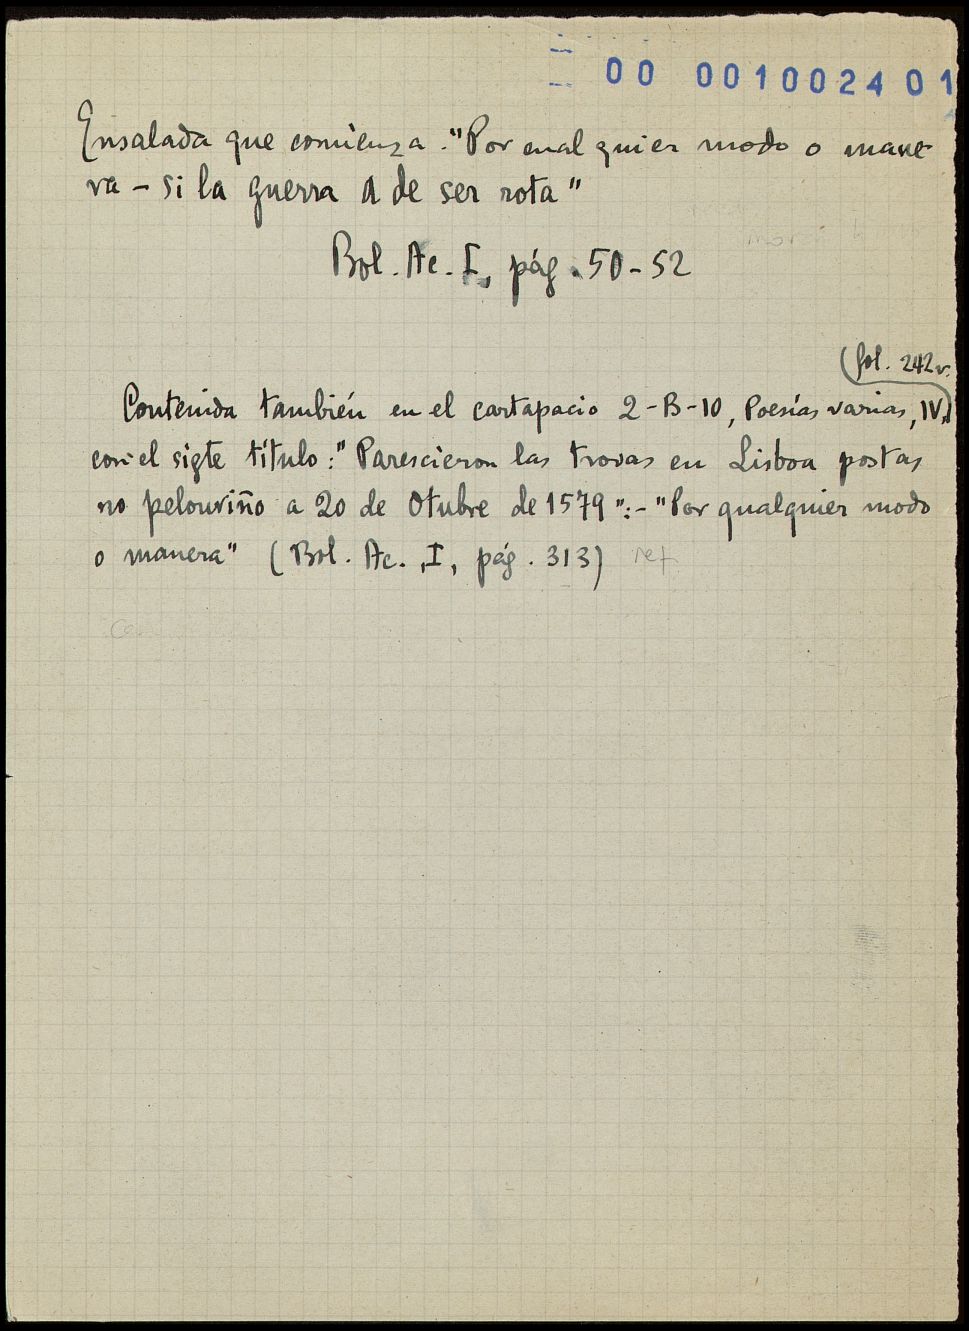 00 0010024 01
Ensalada que comienza: "Por cualquier modo o mane-
ra - si la guerra a de ser rota"
Bol. Ac. I, pág. 50-52
(fol. 242v.
Contenida también en el cartapacio 2-B-10, Poesías varias, IV,)
con el sigte título: "Parescieron las trovas en Lisboa postas
no pelouriño a 20 de Otubre de 1579": - "Por qualquier modo
o manera" (Bol. Ac., I, pág. 313) ref